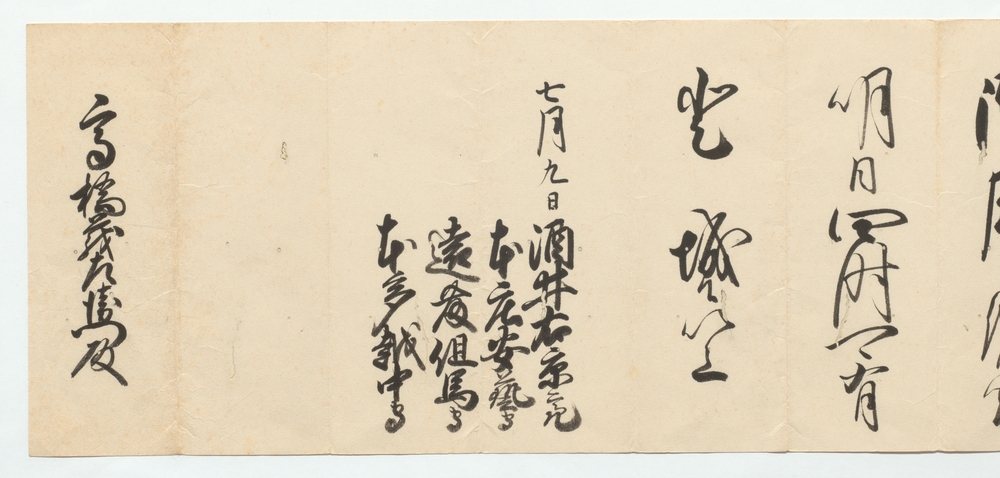 明日四時可有
登 城候以上
七月九日
酒井右京亮
本庄安藝守
遠藤但馬守
本多越中守
高橋茂左衛門殿